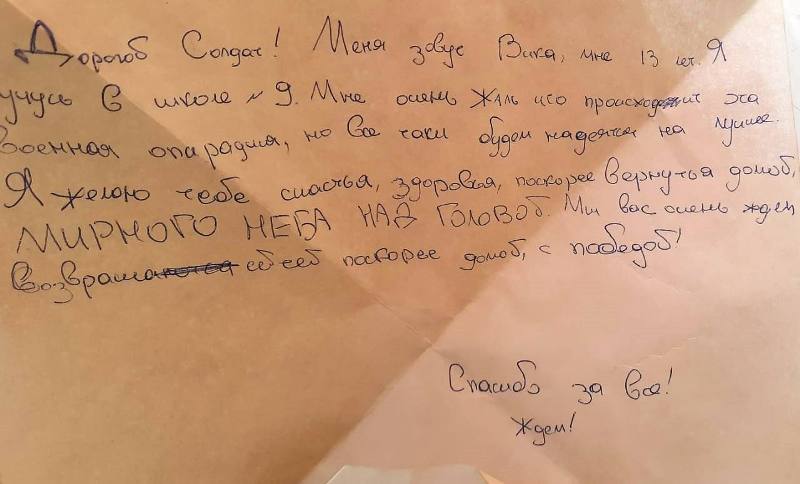 Дорогой Солдат! Меня зовут Вика, мне 13 лет. Я
учусь в школе № 9. Мне очень жаль что происходит эта
военная опарация, но все таки будем надеятся на лучшее.
Я желаю тебе счастья, здоровья, поскорее вернуться домой,
МИРНОГО НЕБА НАД ГОЛОВОЙ. Мы вас очень ждем
Возвраща поскорее домой, с победой!
Спасибо за все!
Ждем!